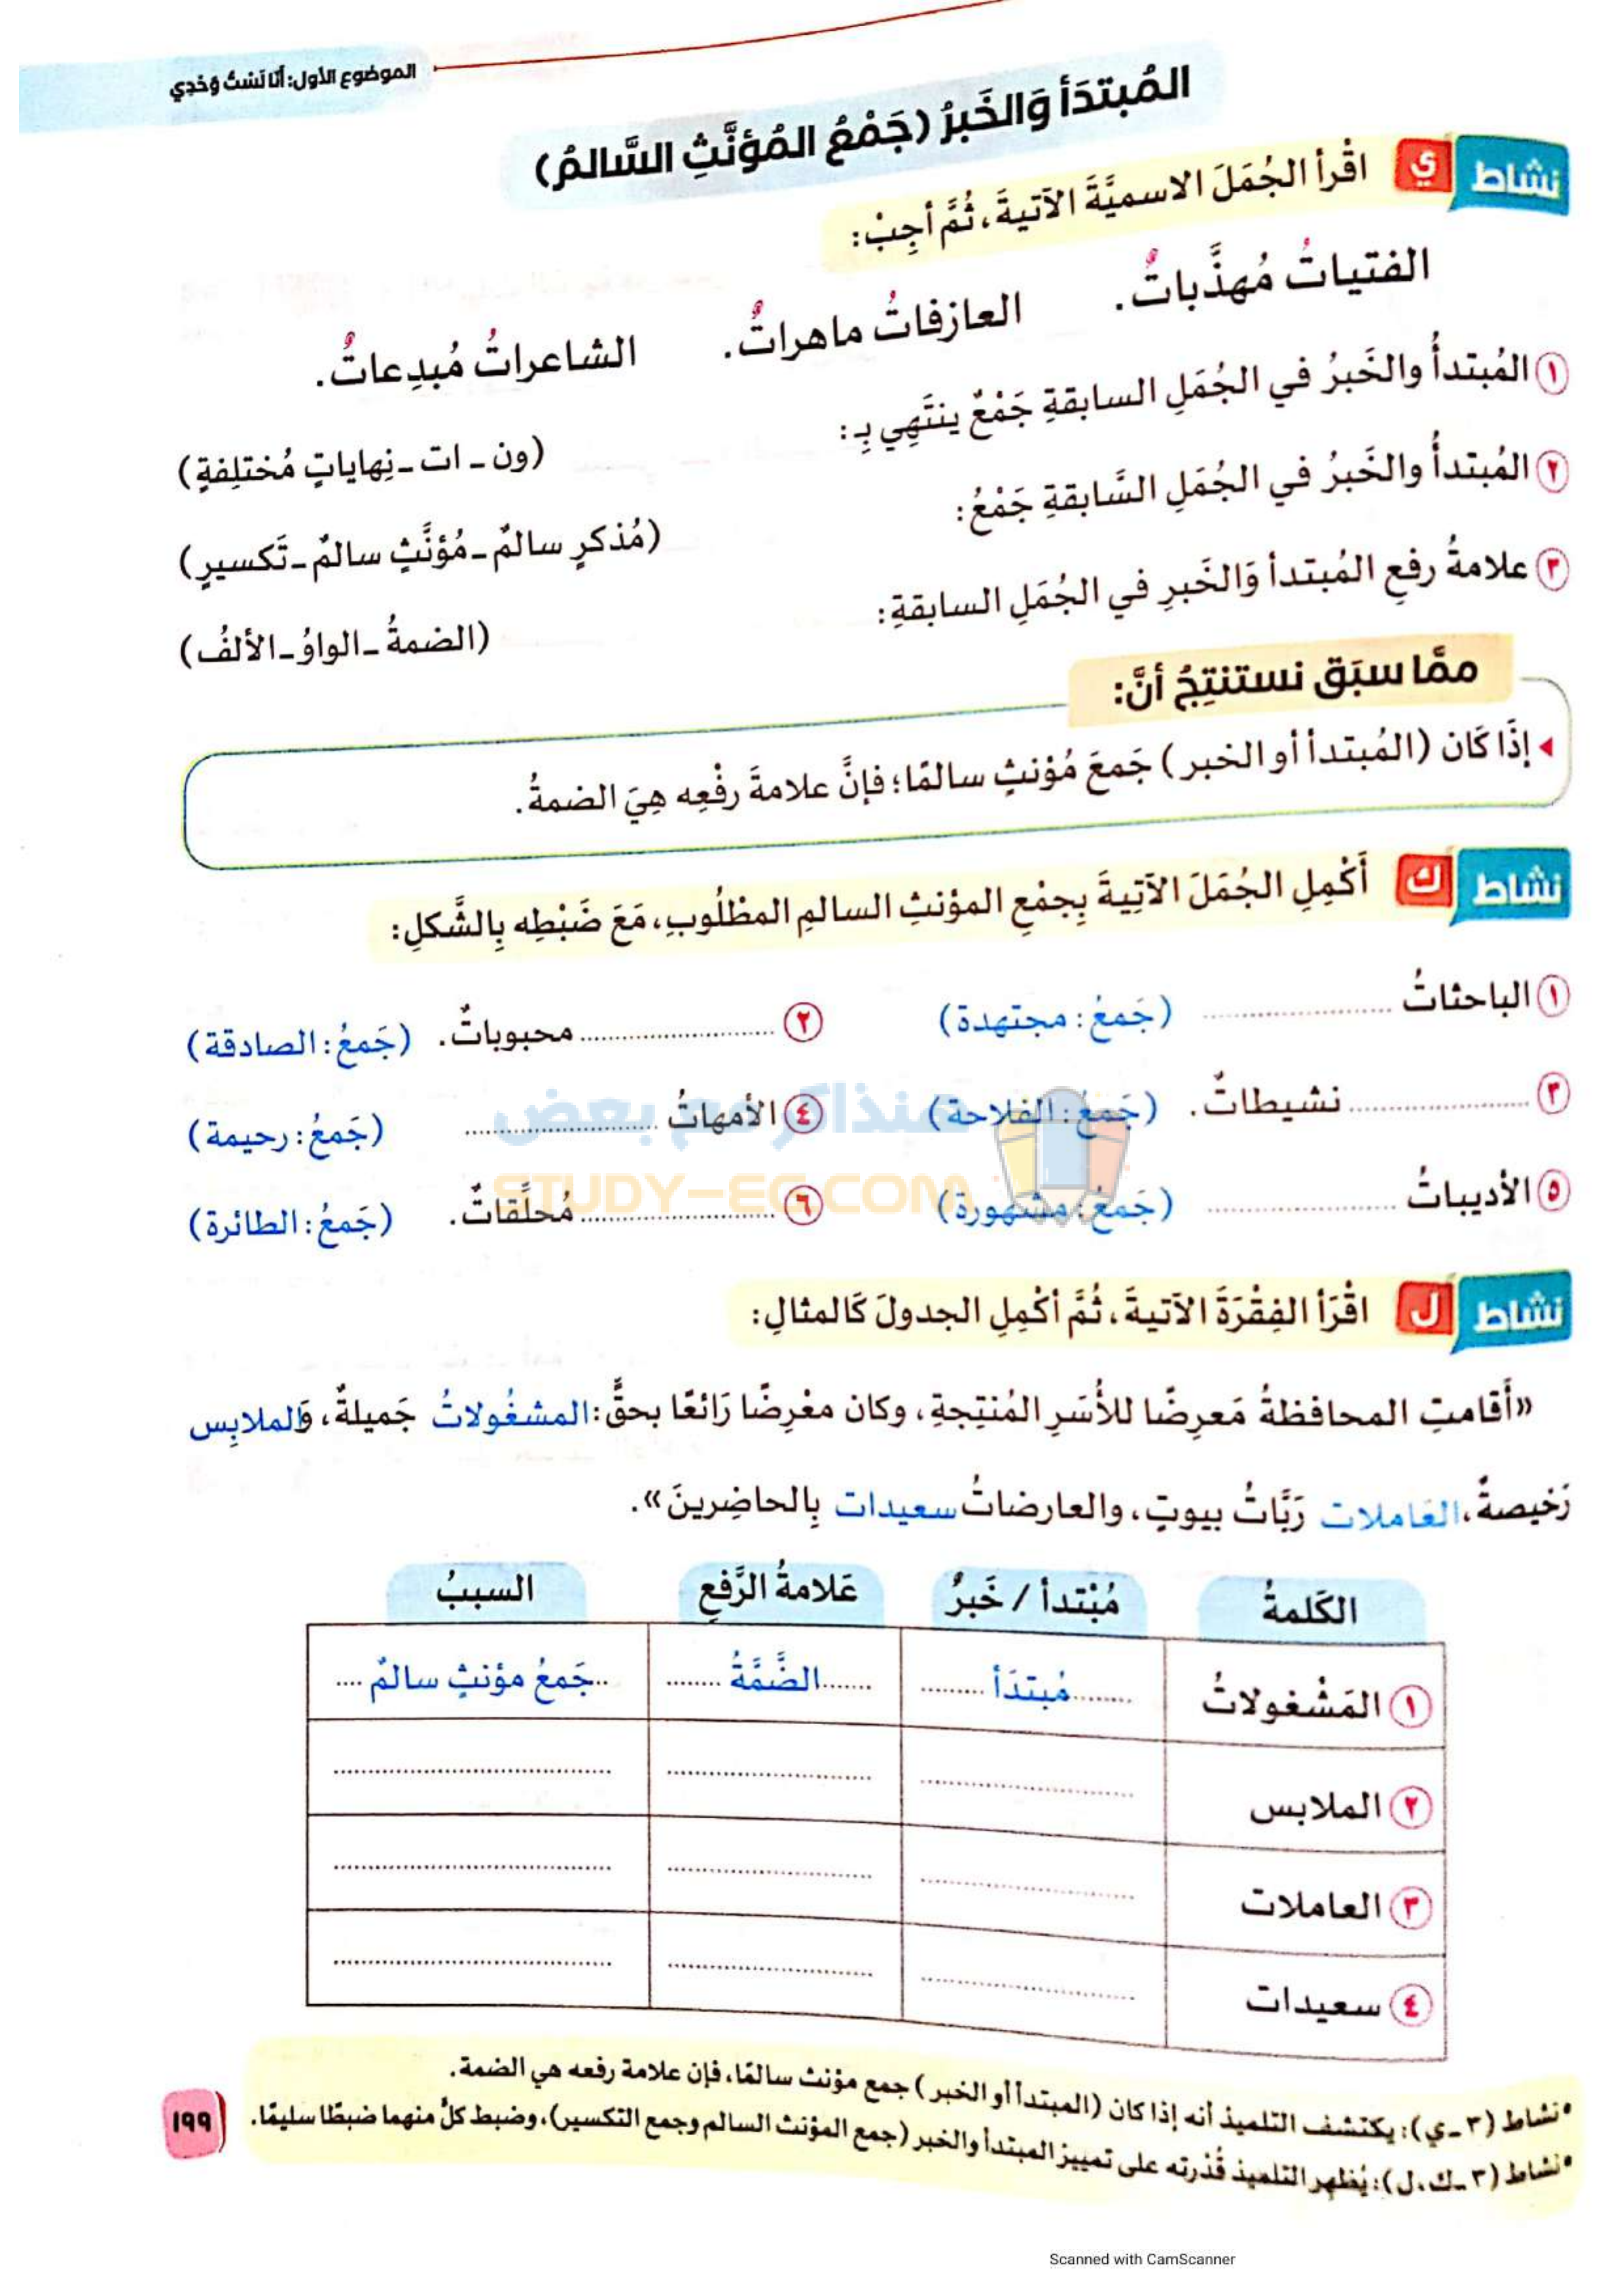 الموضوع الأول: أَنَا لَسْتُ وَحْدِي
المُبتدَأ وَالخَبرُ (جَمْعُ المُؤنَّثِ السَّالمُ)
نشاط ي اقْرأ الجُمَلَ الاسميَّةَ الآتيةَ، ثُمَّ أجِبْ:
الفتياتُ مُهذَّباتٌ. العازفاتُ ماهراتٌ. الشاعراتُ مُبدِعاتٌ.
١ المُبتدأُ والخَبرُ في الجُمَلِ السابقةِ جَمْعٌ ينتَهِي بِـ: (ون ـ ات ـ نِهاياتٍ مُختلِفةٍ)
٢ المُبتدأُ والخَبرُ في الجُمَلِ السَّابقةِ جَمْعُ: (مُذكرٍ سالمٌ ـ مُؤنَّثٍ سالمٌ ـ تَكسيرٍ)
٣ علامةُ رفعِ المُبتدأ وَالخَبرِ في الجُمَلِ السابقةِ: (الضمةُ ـ الواوُ ـ الألفُ)
ممَّا سبَق نستنتِجُ أنَّ:
إذَا كَان (المُبتدأ أو الخبر) جَمعَ مُؤنثٍ سالمًا؛ فإنَّ علامةَ رفْعِه هِيَ الضمةُ.
نشاط ك أَكْمِلِ الجُمَلَ الآتِيةَ بِجمْعِ المؤنثِ السالمِ المطْلُوبِ، مَعَ ضَبْطِه بِالشَّكلِ:
١ الباحثاتُ .................... (جَمعُ: مجتهدة) ٢ .................... محبوباتٌ. (جَمعُ: الصادقة)
٣ .................... نشيطاتٌ. (جَمعُ: الفلاحة) ٤ الأمهاتُ .................... (جَمعُ: رحيمة)
٥ الأديباتُ .................... (جَمعُ: مشهورة) ٦ .................... مُحلِّقاتٌ. (جَمعُ: الطائرة)
منذاكر مع بعض
STUDY-EG.COM
نشاط ل اقْرَأ الفِقْرَةَ الآتيةَ، ثُمَّ أكْمِلِ الجدولَ كَالمثالِ:
«أقَامتِ المحافظةُ مَعرِضًا للأُسَرِ المُنتِجةِ، وكان معْرِضًا رَائعًا بحقٍّ: المشغُولاتُ جَميلةٌ، وَالملابِس
رَخيصةٌ، العَاملات رَبَّاتُ بيوتٍ، والعارضاتُ سعيدات بِالحاضِرينَ».
الكَلمةُ مُبْتدأ / خَبرٌ عَلامةُ الرَّفعِ السببُ
١ المَشْغولاتُ ........مُبتدَأ......... .......الضَّمَّةُ........ ..جَمعُ مؤنثٍ سالمٌ....
٢ الملابس .................... .................... ....................
٣ العاملات .................... .................... ....................
٤ سعيدات .................... .................... ....................
• نشاط (٣ ـ ي): يكتشف التلميذ أنه إذا كان (المبتدأ أو الخبر) جمع مؤنث سالمًا، فإن علامة رفعه هي الضمة.
• نشاط (٣ ـ ك، ل): يُظهِر التلميذ قُدْرته على تمييز المبتدأ والخبر (جمع المؤنث السالم وجمع التكسير)، وضبط كلٍّ منهما ضبطًا سليمًا.
١٩٩
Scanned with CamScanner